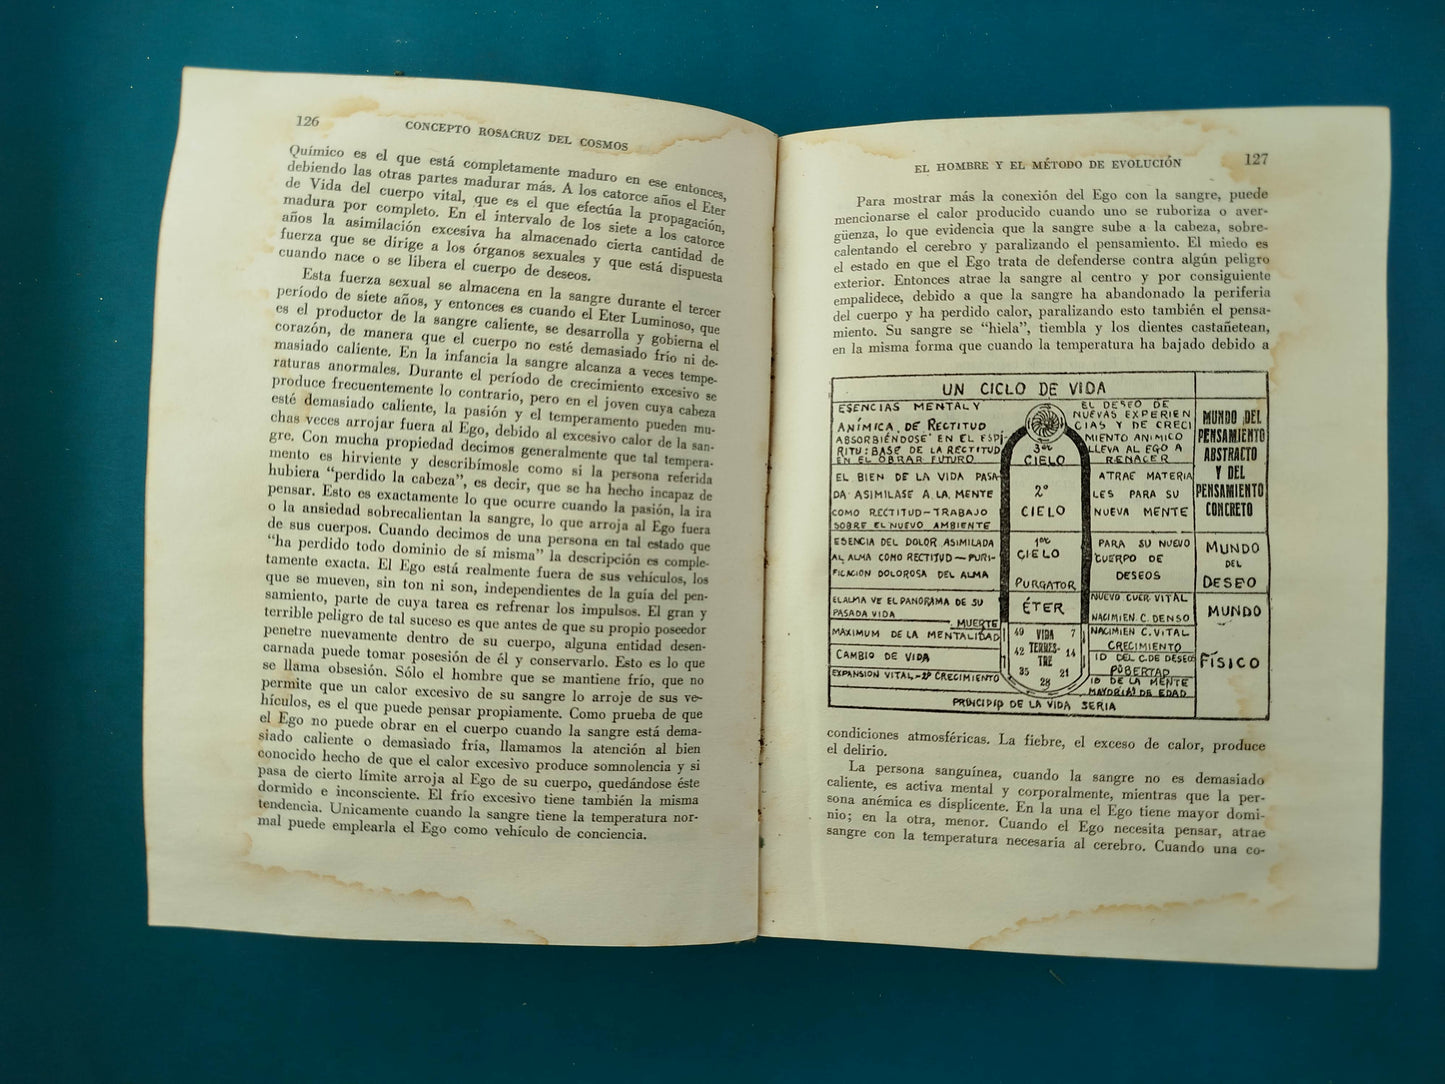 126
CONCEPTO ROSACRUZ DEL COSMOS
Químico es el que está completamente maduro en ese entonces,
debiendo las otras partes madurar más. A los catorce años el Eter
de Vida del cuerpo vital, que es el que efectúa la propagación,
madura por completo. En el intervalo de los siete a los catorce
años la asimilación excesiva ha almacenado cierta cantidad de
fuerza que se dirige a los órganos sexuales y que está dispuesta
cuando nace o se libera el cuerpo de deseos.
Esta fuerza sexual se almacena en la sangre durante el tercer
período de siete años, y entonces es cuando el Eter Luminoso, que
es el productor de la sangre caliente, se desarrolla y gobierna el
corazón, de manera que el cuerpo no esté demasiado frío ni de-
masiado caliente. En la infancia la sangre alcanza a veces tempe-
raturas anormales. Durante el período de crecimiento excesivo se
produce frecuentemente lo contrario, pero en el joven cuya cabeza
esté demasiado caliente, la pasión y el temperamento pueden mu-
chas veces arrojar fuera al Ego, debido al excesivo calor de la san-
gre. Con mucha propiedad decimos generalmente que tal tempera-
mento es hirviente y describímosle como si la persona referida
hubiera “perdido la cabeza”, es decir, que se ha hecho incapaz de
pensar. Esto es exactamente lo que ocurre cuando la pasión, la ira
o la ansiedad sobrecalientan la sangre, lo que arroja al Ego fuera
de sus cuerpos. Cuando decimos de una persona en tal estado que
“ha perdido todo dominio de sí misma” la descripción es comple-
tamente exacta. El Ego está realmente fuera de sus vehículos, los
que se mueven, sin ton ni son, independientes de la guía del pen-
samiento, parte de cuya tarea es refrenar los impulsos. El gran y
terrible peligro de tal suceso es que antes de que su propio poseedor
penetre nuevamente dentro de su cuerpo, alguna entidad desen-
carnada puede tomar posesión de él y conservarlo. Esto es lo que
se llama obsesión. Sólo el hombre que se mantiene frío, que no
permite que un calor excesivo de su sangre lo arroje de sus ve-
hículos, es el que puede pensar propiamente. Como prueba de que
el Ego no puede obrar en el cuerpo cuando la sangre está dema-
siado caliente o demasiado fría, llamamos la atención al bien
conocido hecho de que el calor excesivo produce somnolencia y si
pasa de cierto límite arroja al Ego de su cuerpo, quedándose éste
dormido e inconsciente. El frío excesivo tiene también la misma
tendencia. Unicamente cuando la sangre tiene la temperatura nor-
mal puede emplearla el Ego como vehículo de conciencia.
EL HOMBRE Y EL MÉTODO DE EVOLUCIÓN
127
Para mostrar más la conexión del Ego con la sangre, puede
mencionarse el calor producido cuando uno se ruboriza o aver-
güenza, lo que evidencia que la sangre sube a la cabeza, sobre-
calentando el cerebro y paralizando el pensamiento. El miedo es
el estado en que el Ego trata de defenderse contra algún peligro
exterior. Entonces atrae la sangre al centro y por consiguiente
empalidece, debido a que la sangre ha abandonado la periferia
del cuerpo y ha perdido calor, paralizando esto también el pensa-
miento. Su sangre se “hiela”, tiembla y los dientes castañetean,
en la misma forma que cuando la temperatura ha bajado debido a
UN CICLO DE VIDA
ESENCIAS MENTAL Y
ANÍMICA DE RECTITUD
ABSORBIÉNDOSE EN EL ESPÍ-
RITU: BASE DE LA RECTITUD
EN EL OBRAR FUTURO
3er
CIELO
EL DESEO DE
NUEVAS EXPERIEN
CIAS Y DE CRECI
MIENTO ANIMICO
LLEVA AL EGO A
RENACER
MUNDO DEL
PENSAMIENTO
ABSTRACTO
Y DEL
PENSAMIENTO
CONCRETO
EL BIEN DE LA VIDA PASA-
DA ASIMILASE A LA MENTE
COMO RECTITUD-TRABAJO
SOBRE EL NUEVO AMBIENTE
2º
CIELO
ATRAE MATERIA
LES PARA SU
NUEVA MENTE
ESENCIA DEL DOLOR ASIMILADA
AL ALMA COMO RECTITUD - PURI-
FICACION DOLOROSA DEL ALMA
1er
CIELO
PURGATOR
PARA SU NUEVO
CUERPO DE
DESEOS
MUNDO
DEL
DESEO
EL ALMA VE EL PANORAMA DE SU
PASADA VIDA
MUERTE
ÉTER
NUEVO CUER. VITAL
NACIMIEN. C. DENSO
MUNDO
FÍSICO
MAXIMUM DE LA MENTALIDAD
CAMBIO DE VIDA
EXPANSION VITAL-2º CRECIMIENTO
49 VIDA 7
42 TERRES- 14
TRE
35 21
28
NACIMIEN C. VITAL
CRECIMIENTO
ID DEL C. DE DESEO
PÚBERTAD
ID DE LA MENTE
MAYORIA DE EDAD
PRINCIPIO DE LA VIDA SERIA
condiciones atmosféricas. La fiebre, el exceso de calor, produce
el delirio.
La persona sanguínea, cuando la sangre no es demasiado
caliente, es activa mental y corporalmente, mientras que la per-
sona anémica es displicente. En la una el Ego tiene mayor domi-
nio; en la otra, menor. Cuando el Ego necesita pensar, atrae
sangre con la temperatura necesaria al cerebro. Cuando una co-